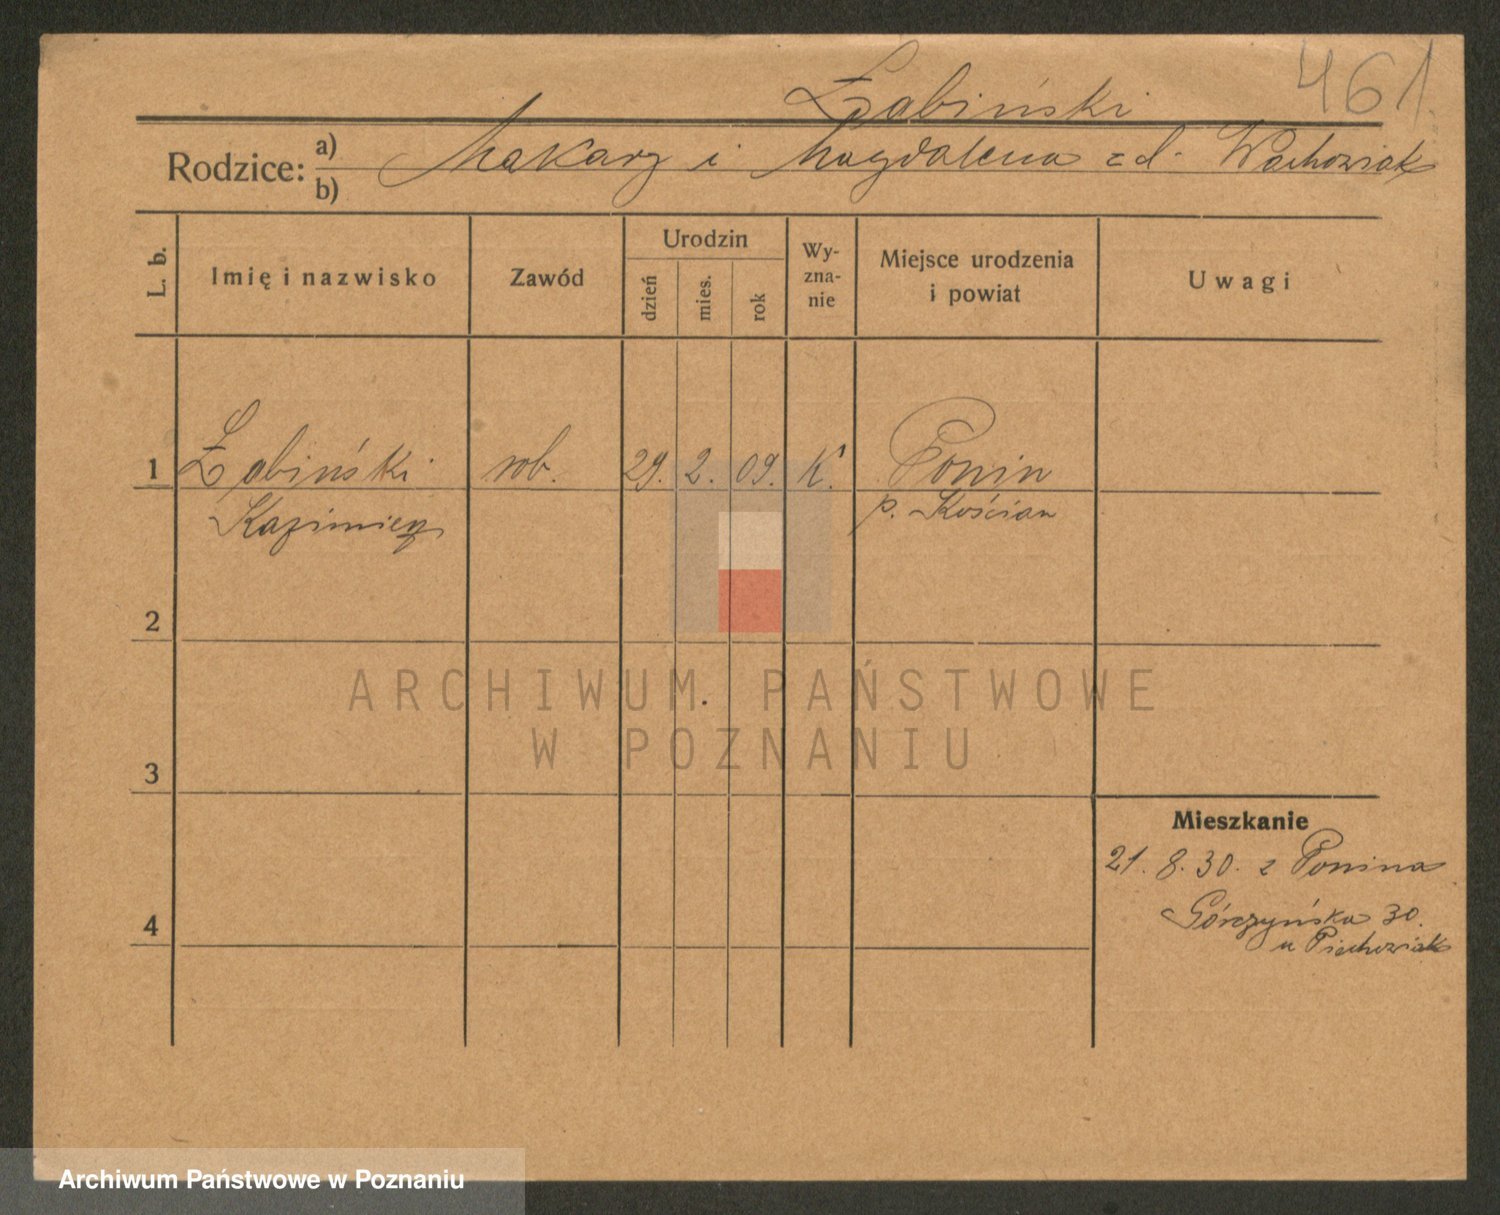 461
Żabiński
Rodzice: a) Makary i Magdalena z d. Wachowiak
b)
L. b.
Imię i nazwisko
Zawód
Urodzin
dzień
mies.
rok
Wy-
zna-
nie
Miejsce urodzenia
i powiat
Uwagi
1 Żabiński rob. 29. 2. 09. K. Ponin
Kazimierz p. Kościan
2
3
4
Mieszkanie
21. 8. 30. z Ponina
Górczyńska 30.
u Piechowiak
ARCHIWUM PAŃSTWOWE
W POZNANIU
Archiwum Państwowe w Poznaniu